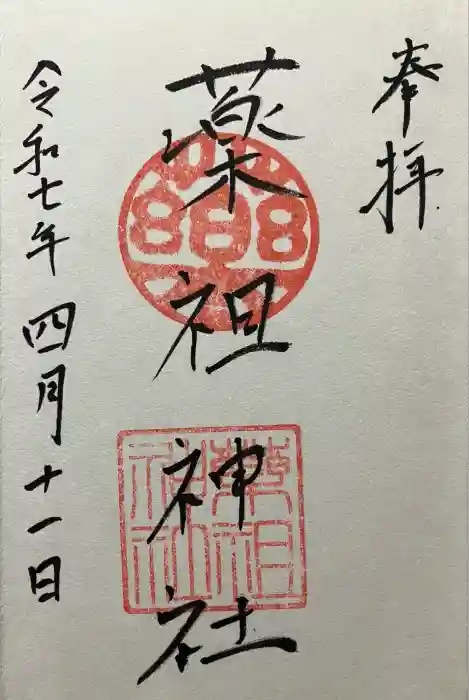 奉拝
薬祖神社
薬祖神社
令和七年四月十一日